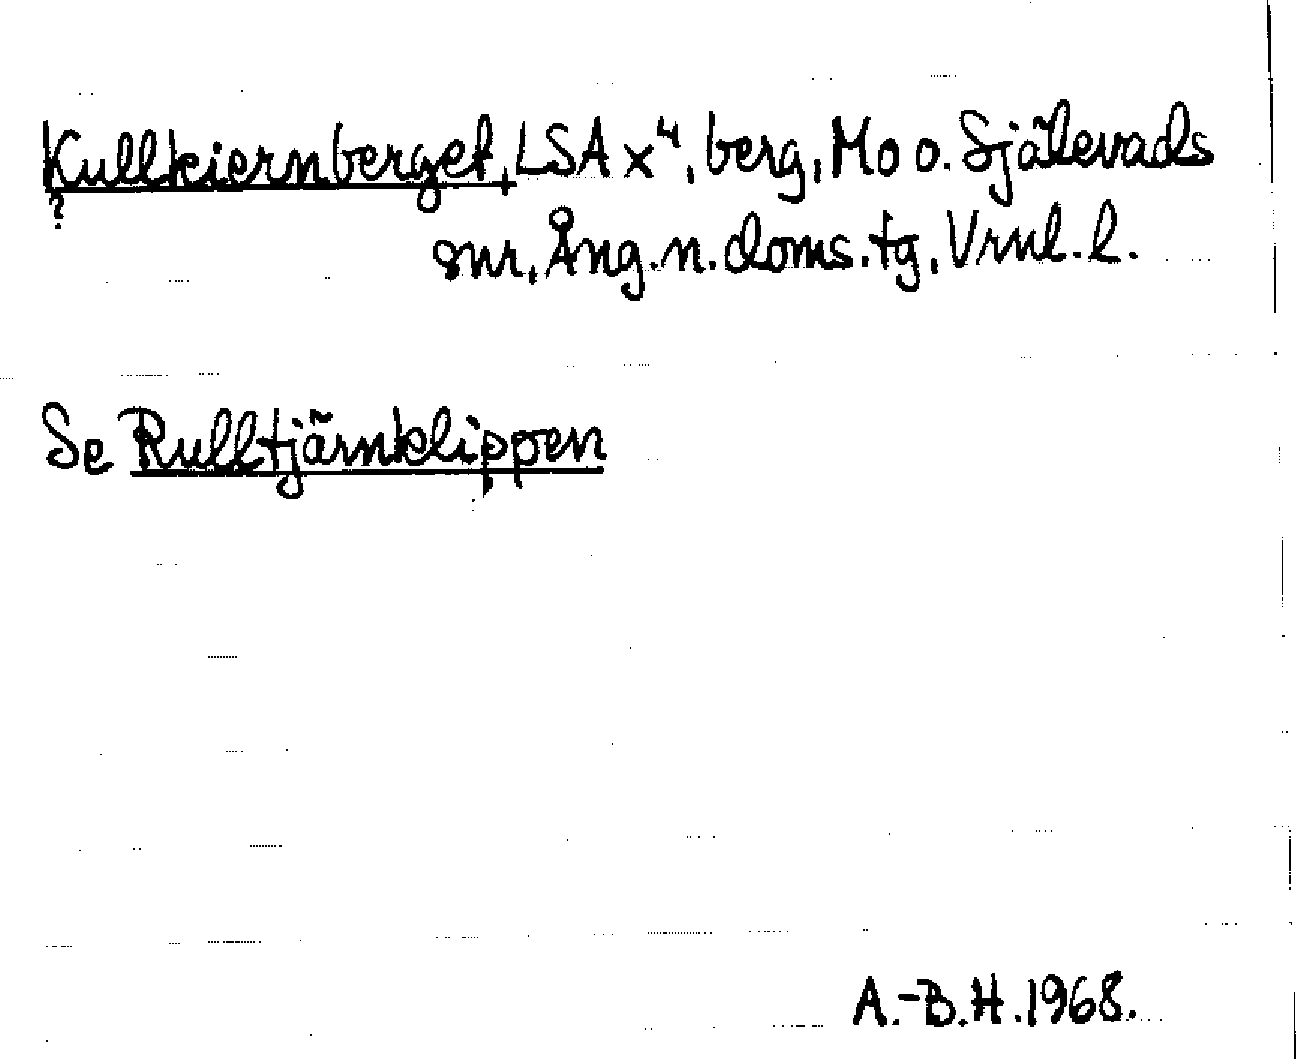 Kullkiernberget, LSA x⁴, berg, Mo o. Själevads
?
snr, Ång. n. doms. tg, Vrnl. l.
Se Rulltjärnklippen
A.-B.H. 1968.